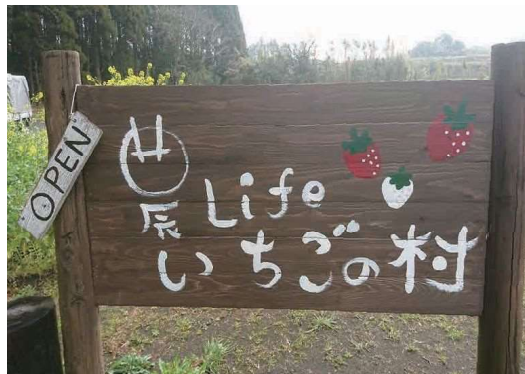 OPEN
農 Life
いちごの村